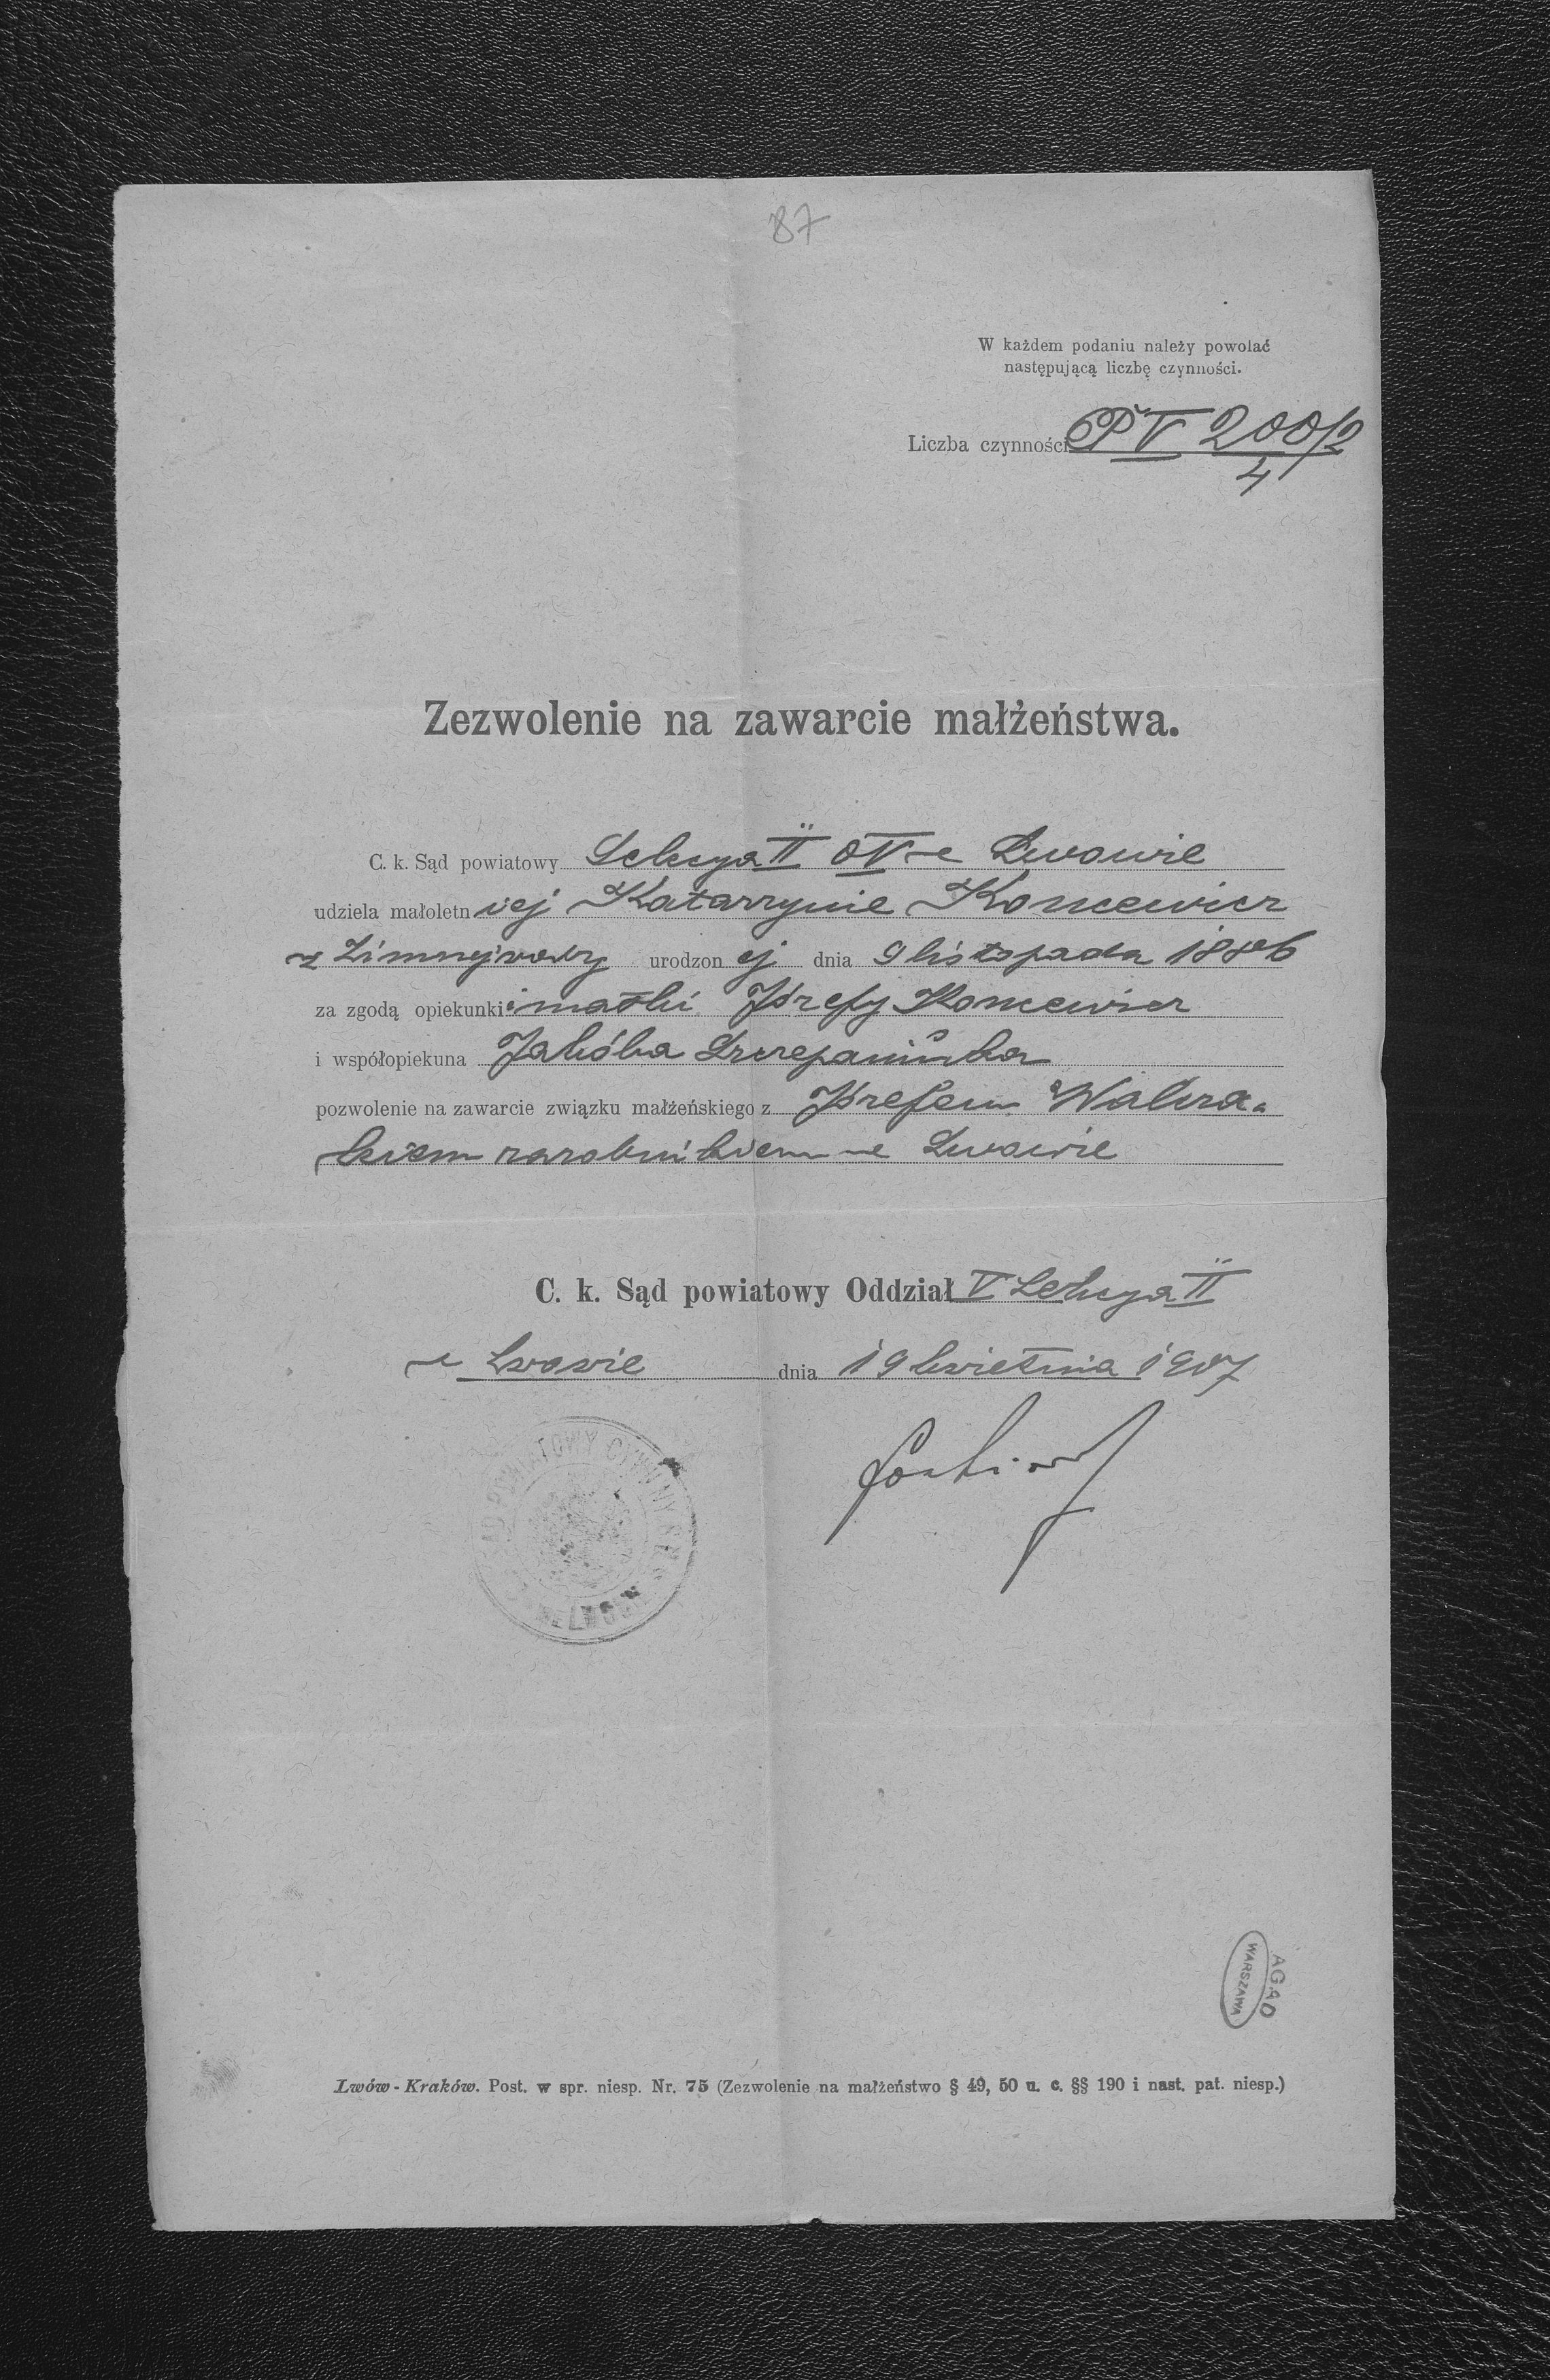 87
W każdem podaniu należy powołać
następującą liczbę czynności.
Liczba czynności P V 200/2
4
Zezwolenie na zawarcie małżeństwa.
C. k. Sąd powiatowy Sekcya II O V we Lwowie
udziela małoletniej Katarzynie Koncewicz
z Zimnejwody urodzonej dnia 9 listopada 1886
za zgodą opiekunki i matki Józefy Koncewicz
i współopiekuna Jakóba Szczepaniuka
pozwolenie na zawarcie związku małżeńskiego z Józefem
zarobnikiem we Lwowie
C. k. Sąd powiatowy Oddział V Sekcya II
we Lwowie dnia 19 kwietnia 1907
POWIATOWY CYWILNY
AGAD
WARSZAWA
Lwów-Kraków. Post. w spr. niesp. Nr. 75 (Zezwolenie na małżeństwo § 49, 50 u. c. §§ 190 i nast. pat. niesp.)